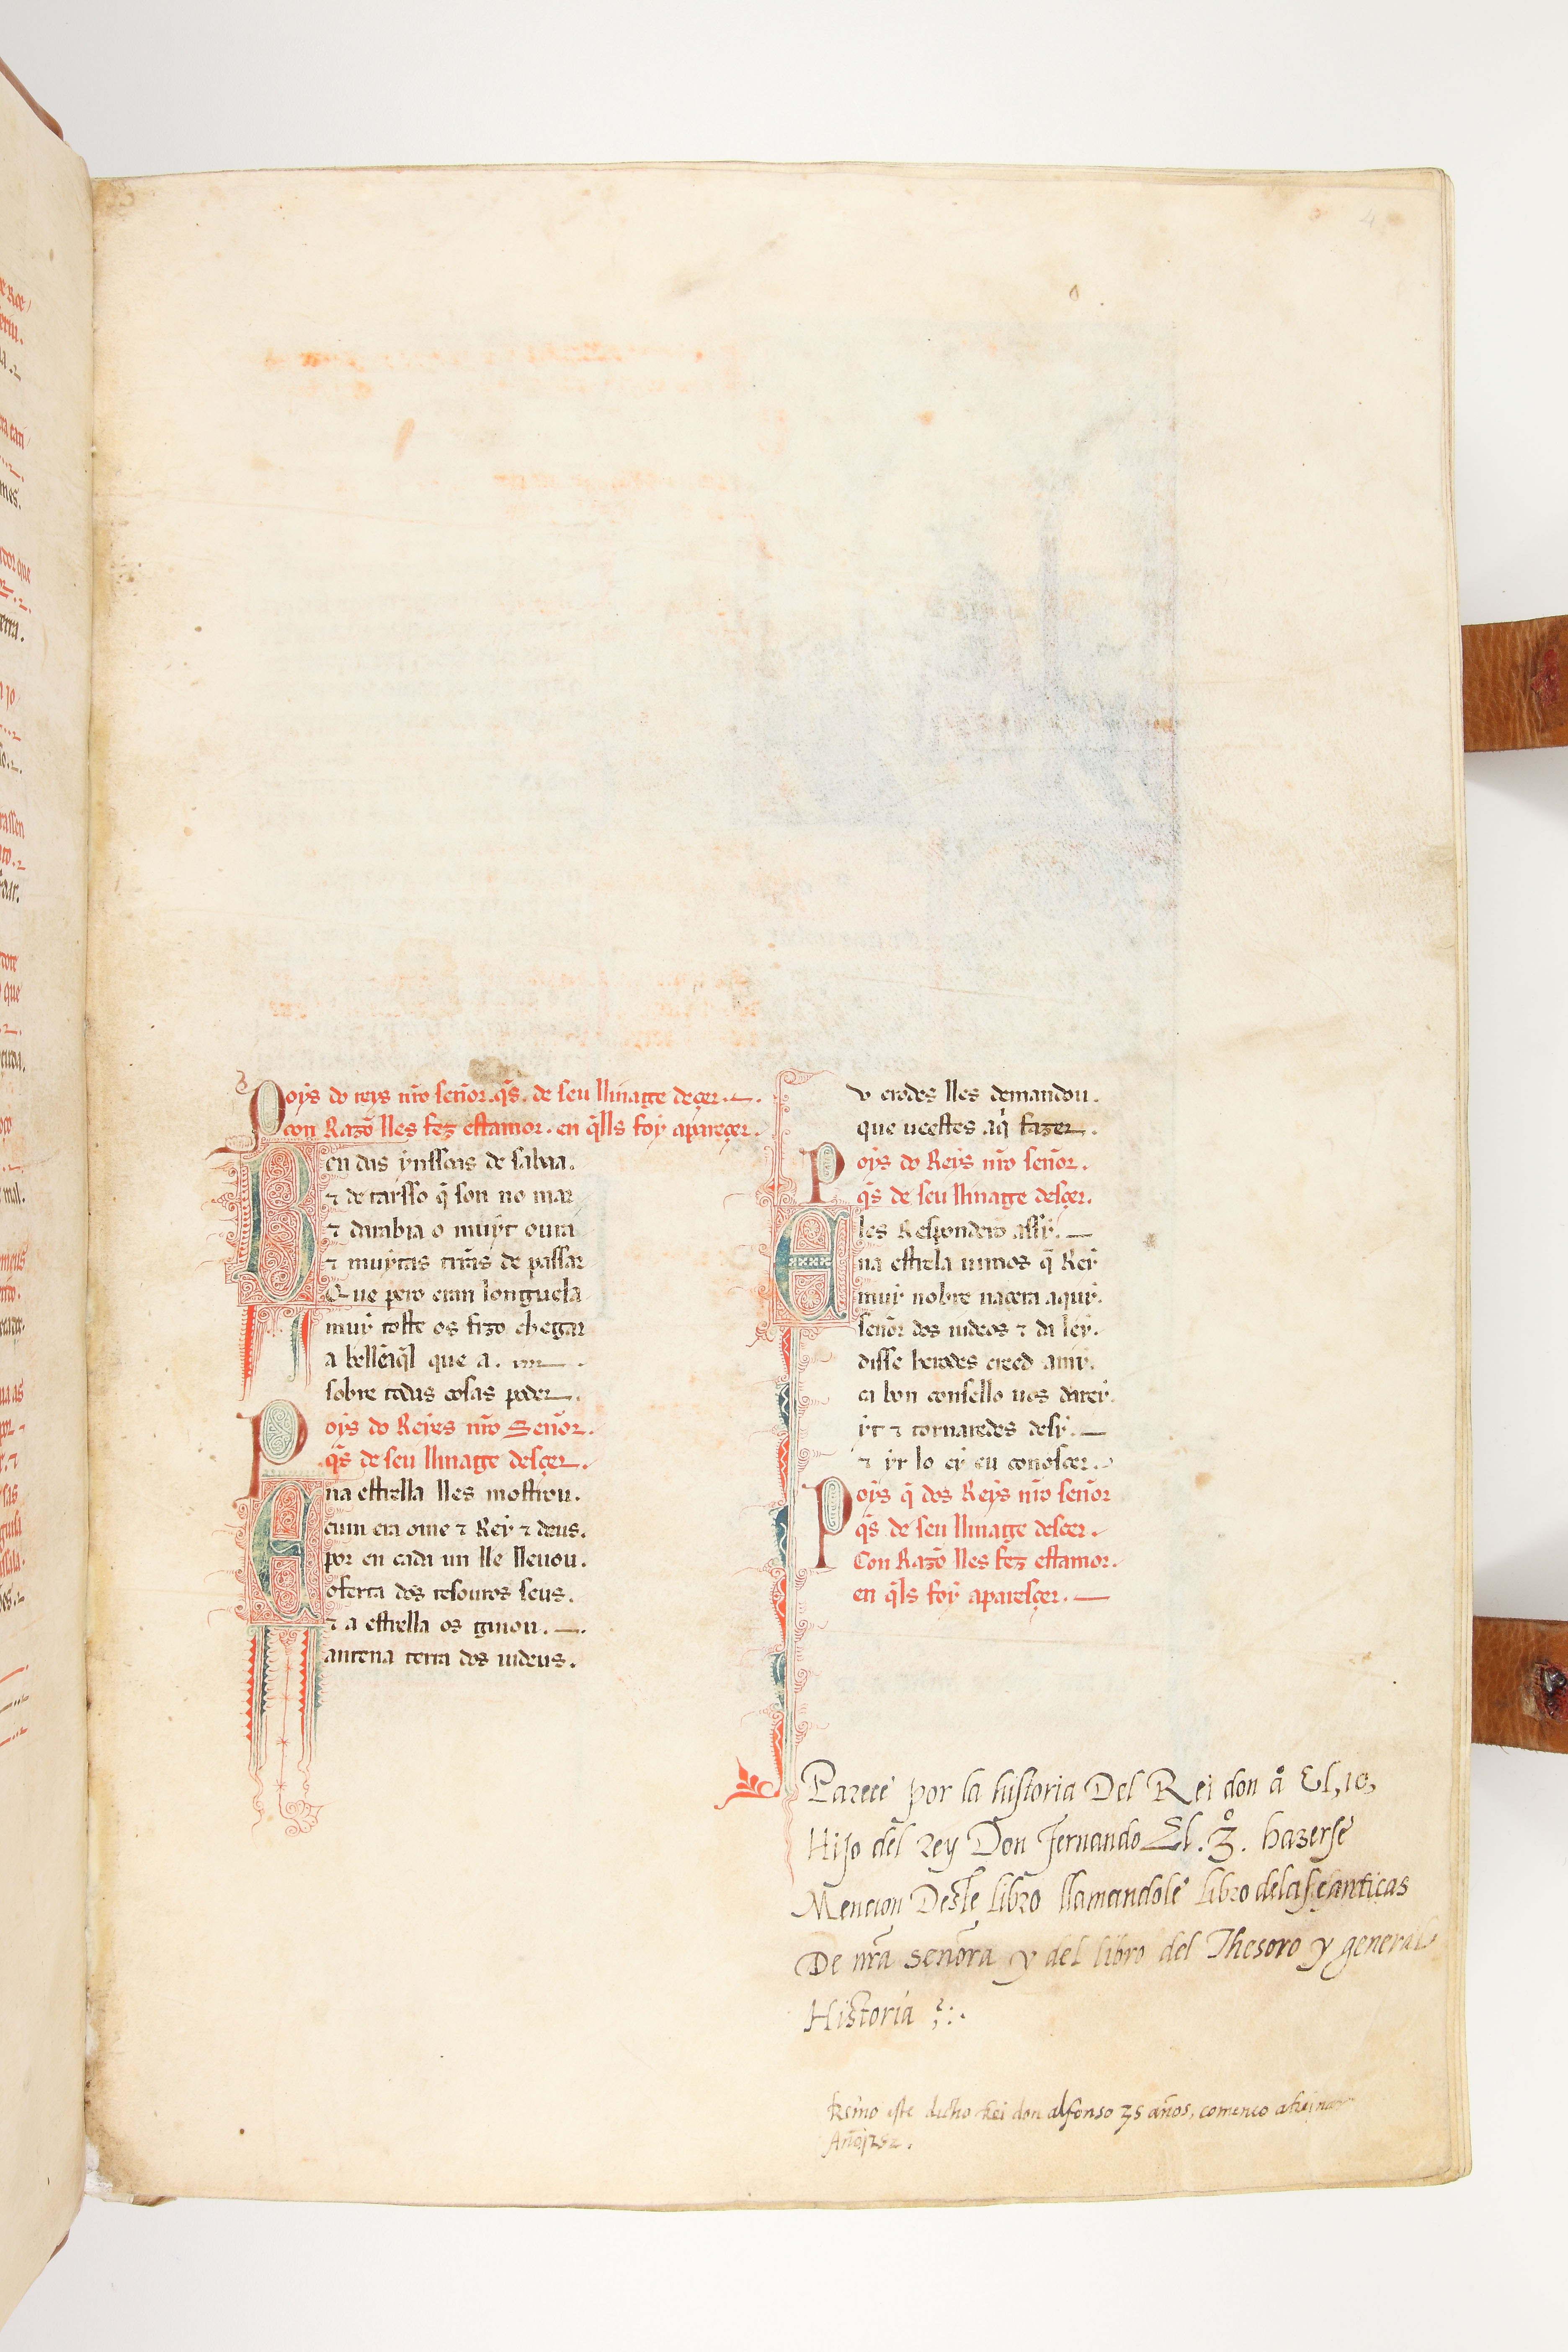 4
Poys do reys nr̃o señor. q̃s. de seu llinage deçer.
con Razõ lles fez estamor. en q̃lls foy apareçer.
Ben das ynssoas de sabaa.
⁊ de tarsso q̃ son no mar
⁊ darabia o muyt oura
⁊ muytas trr̃as de passar
Que pero eran longuela
muy toste os fizo chegar
a belleẽ aq̃l que a.
sobre todas cosas poder.
Poys do Reyes nr̃o Señor.
q̃s de seu llinage desçer.
na estrella lles mostrou.
cum era ome ⁊ Rey ⁊ deus.
por en cada un lle lleuou.
oferta dos tesouros seus.
⁊ a estrella os guiou.
antena terra dos iudeus.
v erodes lles demandou.
que ueestes aq̃ fazer.
Poys do Reys nr̃o señor.
q̃s de seu llinage desçer.
Eles Respondero assy.
na estrela uimos q̃ Rey
muy nobre nacera aquy.
señor dos iudeos ⁊ da ley.
disse herodes creed amy.
ca bon consello uos darey.
yt ⁊ tornaredes desy.
⁊ yr lo ey eu conoscer.
Poys q̃ dos Reys nr̃o señor
q̃s de seu llinage desçer.
Con Razõ lles fez estamor.
en q̃ls foy aparesçer.
Parece por la historia Del Rei don aº El, 10,
Hijo del rey Don fernando El. 3º. hazerse
Mencion Deste libro llamandole libro delas cãnticas
De nrã señora y del libro del Thesoro y general
Historia
Reino este dicho Rei don alfonso 35 años, comenco a Reinar